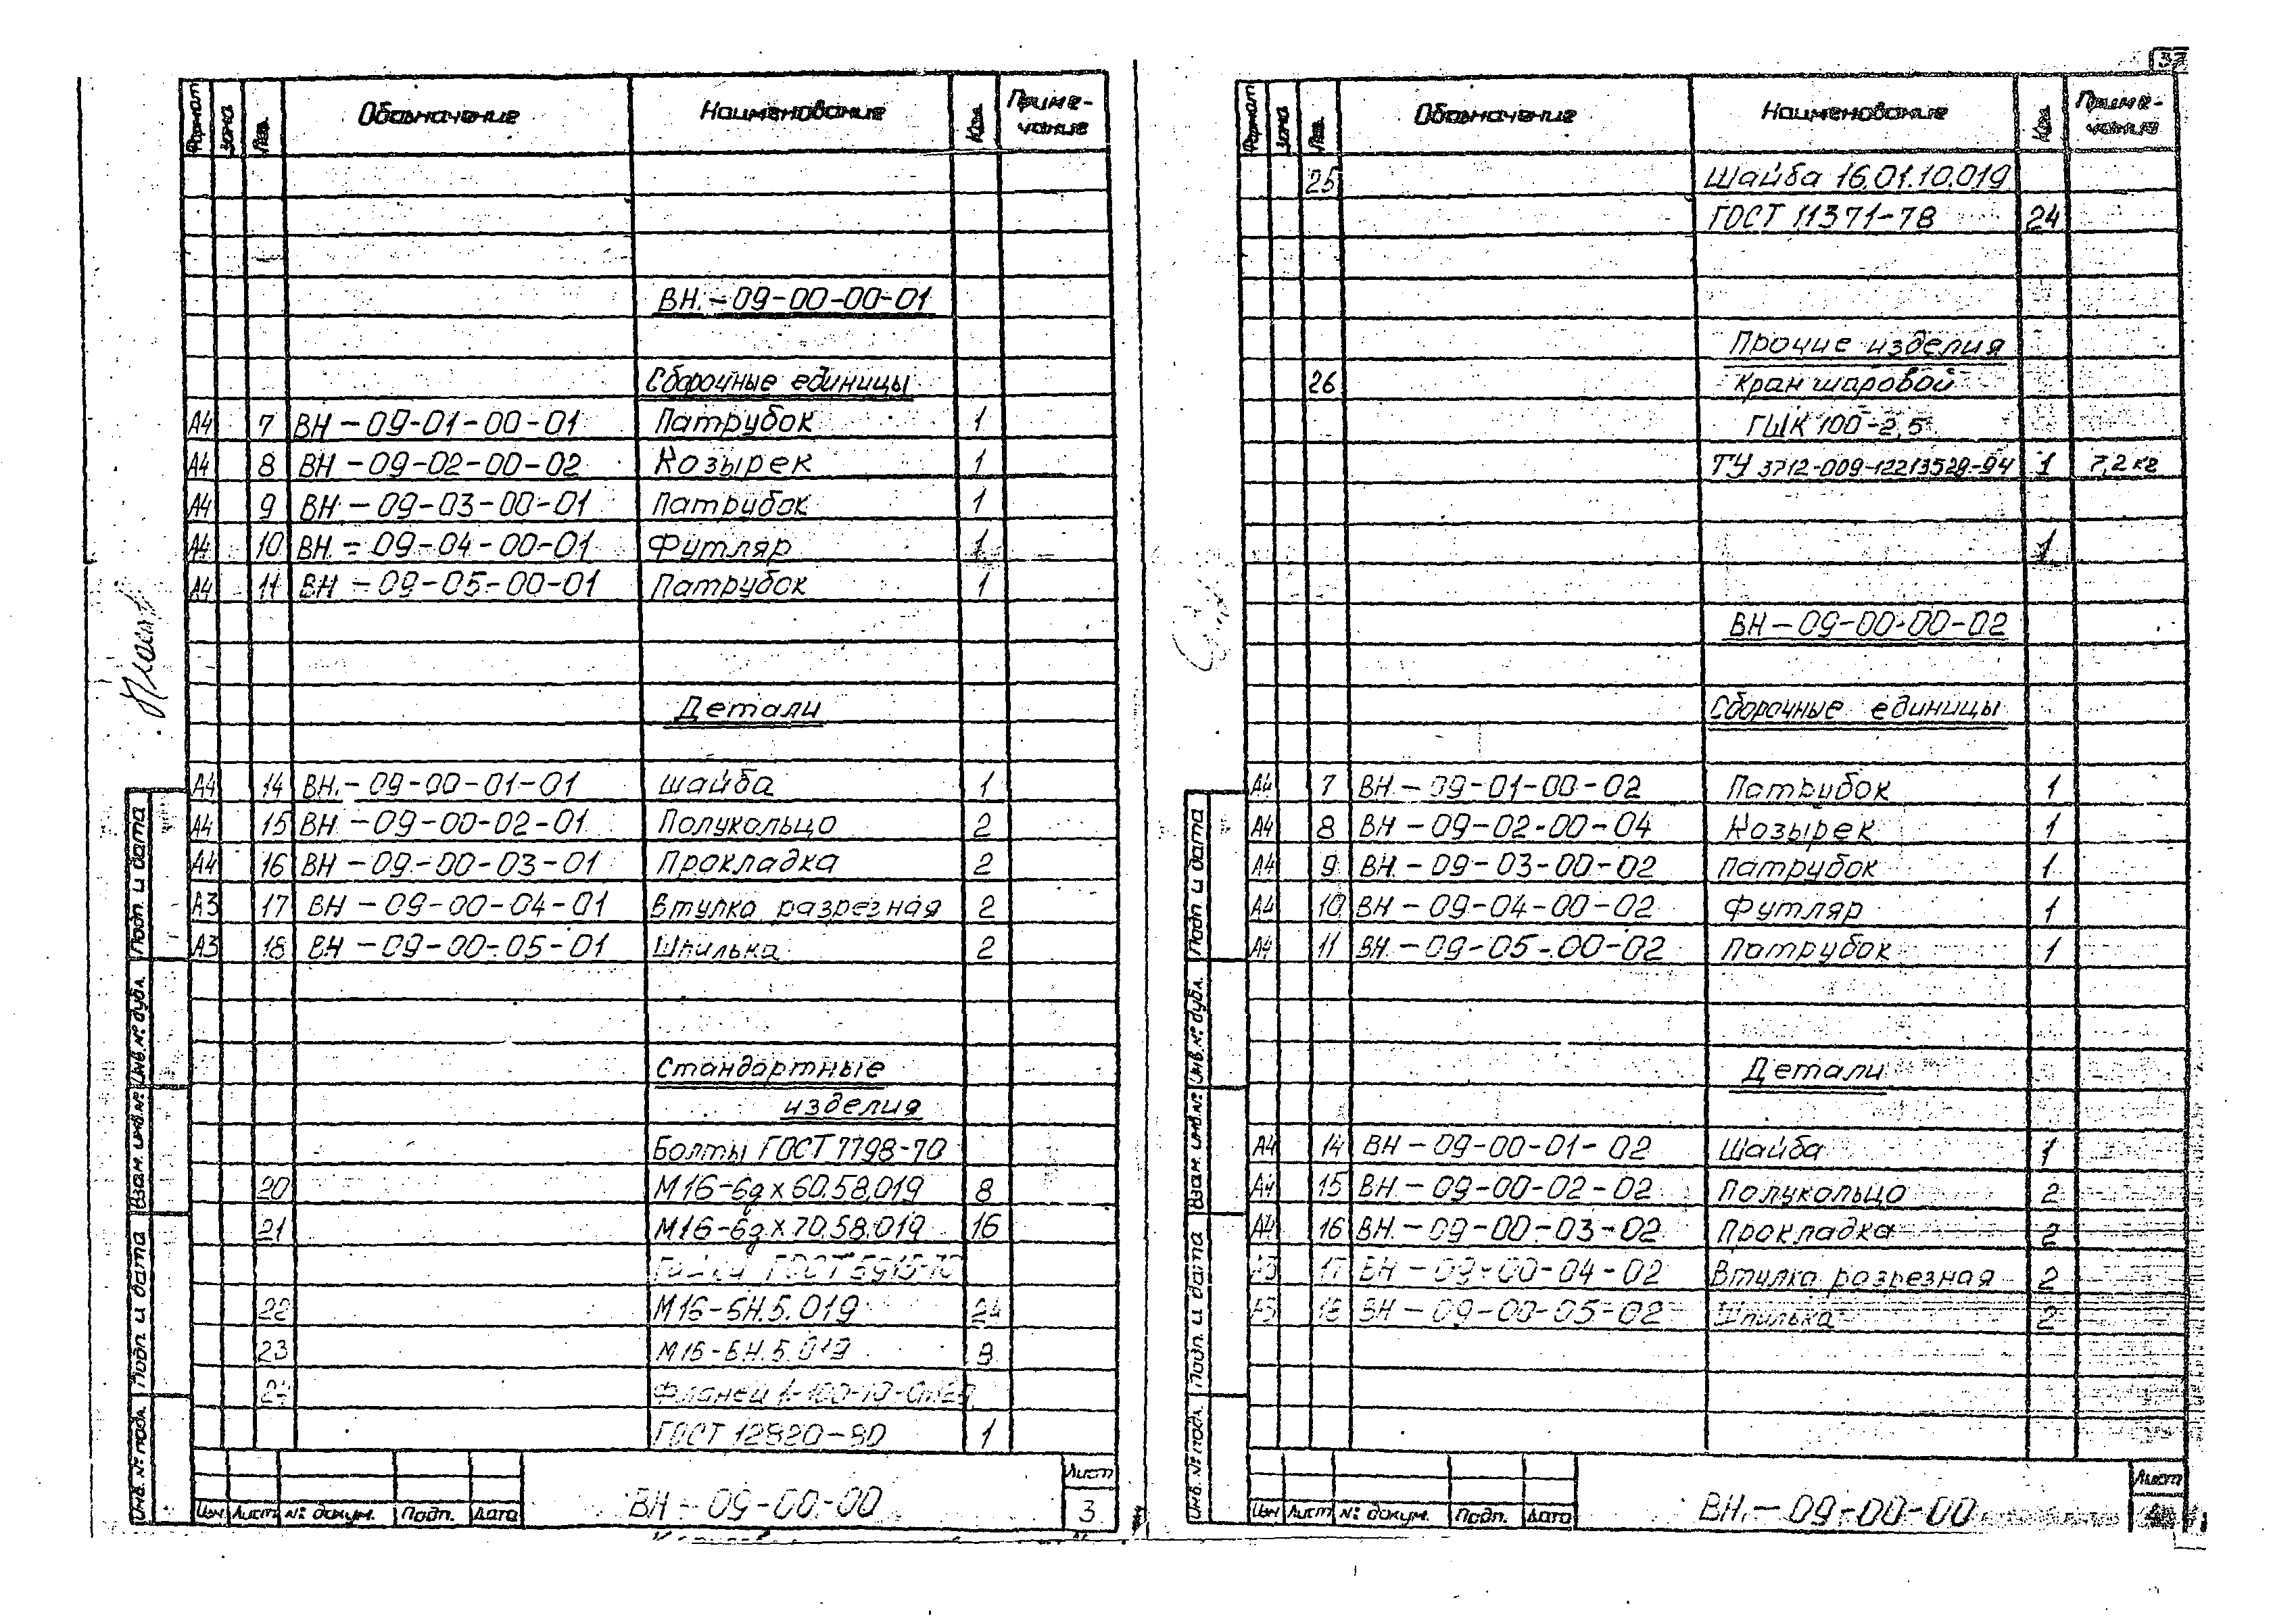 Формат зона Поз. Обозначение Наименование Кол. Приме-
чание
ВН.-09-00-00-01
Сборочные единицы
А4 7 ВН-09-01-00-01 Патрубок 1
А4 8 ВН-09-02-00-02 Козырек 1
А4 9 ВН-09-03-00-01 Патрубок 1
А4 10 ВН-09-04-00-01 Футляр 1
А4 11 ВН-09-05-00-01 Патрубок 1
Детали
А4 14 ВН.-09-00-01-01 шайба 1
А4 15 ВН-09-00-02-01 Полукольцо 2
А4 16 ВН-09-00-03-01 Прокладка 2
А3 17 ВН-09-00-04-01 Втулка разрезная 2
А3 18 ВН-09-00-05-01 Шпилька 2
Стандартные
изделия
Болты ГОСТ 7798-70
20 М16-6gх60.58.019 8
21 М16-6gх70.58.019 16
Гайки ГОСТ 5915-70
22 М16-6Н.5.019 24
23 М16-6Н.5.019 8
24 Фланец 1-100-10-
ГОСТ 12820-80 1
Инв. № подл. Подп. и дата Взам. инв. № Инв. № дубл. Подп. и дата
Изм Лист № докум. Подп. Дата
ВН-09-00-00
Лист
3
37
Формат зона Поз. Обозначение Наименование Кол. Приме-
чание
25 Шайба 16.01.10.019
ГОСТ 11371-78 24
Прочие изделия
26 Кран шаровой
ГШК 100-2,5
ТУ 3712-009-12213529-94 1 7,2 кг
1
ВН-09-00-00-02
Сборочные единицы
А4 7 ВН-09-01-00-02 Патрубок 1
А4 8 ВН-09-02-00-04 Козырек 1
А4 9 ВН-09-03-00-02 патрубок 1
А4 10 ВН-09-04-00-02 Футляр 1
А4 11 ВН-09-05-00-02 Патрубок 1
Детали
А4 14 ВН-09-00-01-02 Шайба 1
А4 15 ВН-09-00-02-02 Полукольцо 2
А4 16 ВН-09-00-03-02 Прокладка 2
А3 17 ВН-09-00-04-02 Втулка разрезная 2
А3 18 ВН-09-00-05-02 Шпилька 2
Инв. № подл. Подп. и дата Взам. инв. № Инв. № дубл. Подп. и дата
Изм Лист № докум. Подп. Дата
ВН.-09-00-00
Лист
4